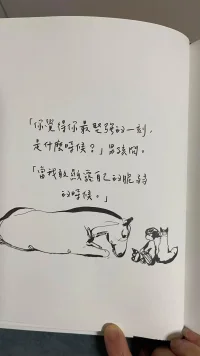 「你覺得你最堅強的一刻，
是什麼時候？」男孩問。
「當我敢顯露自己的脆弱
的時候。」